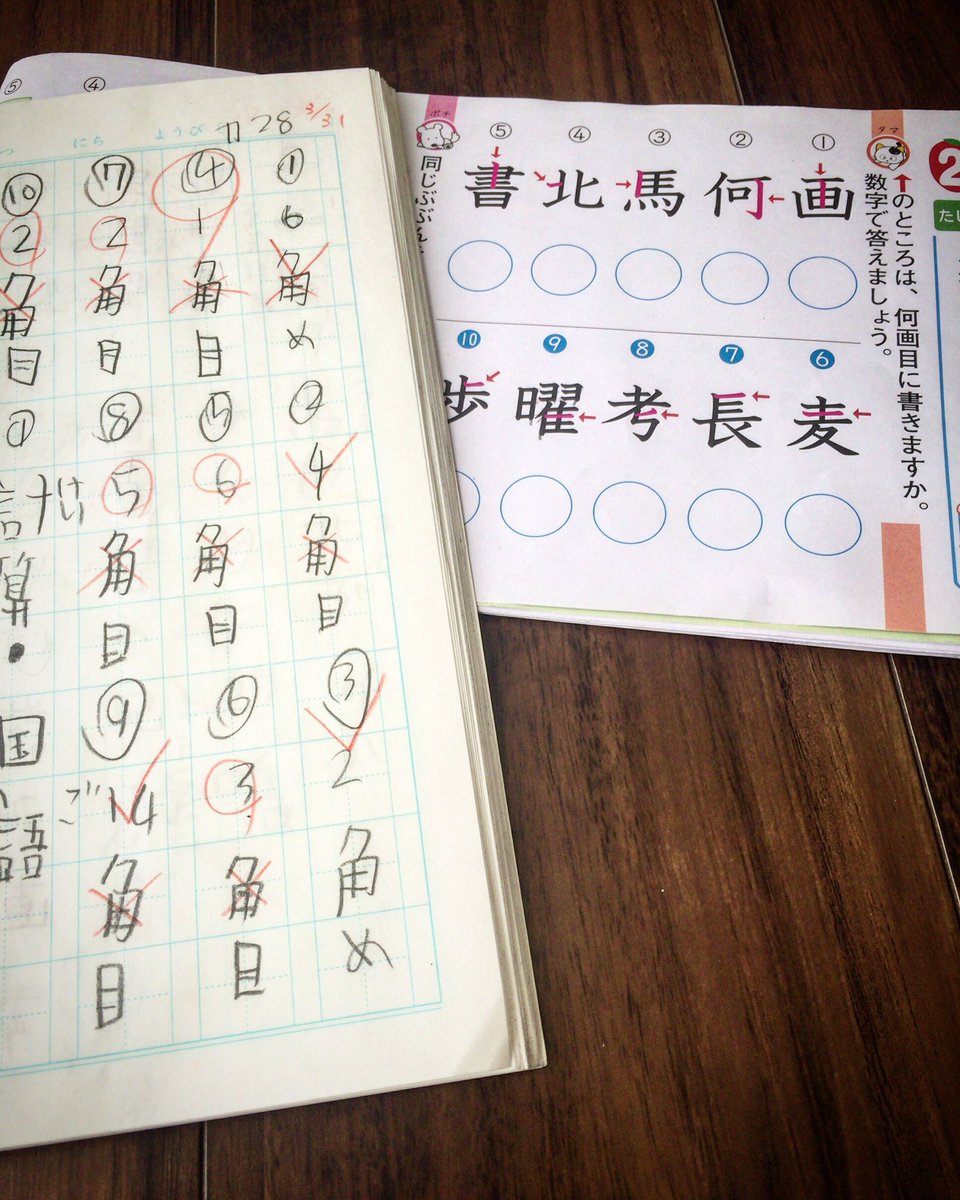 3/31
カ28
にち
ようび
①
6
角
め
②
4
角
目
③
2
角
め
④
1
角
目
⑤
6
角
目
⑥
3
角
目
⑦
2
角
目
⑧
5
角
目
⑨
14
角
目
⑩
2
角
目
①
けい
計算・国語
ご
⑤
④
2
たい
タマ
↑のところは、何画目に書きますか。
数字で答えましょう。
① 画
② 何
③ 馬
④ 北
⑤ 書
⑥ 麦
⑦ 長
⑧ 考
⑨ 曜
⑩ 歩
ポチ
同じぶぶん